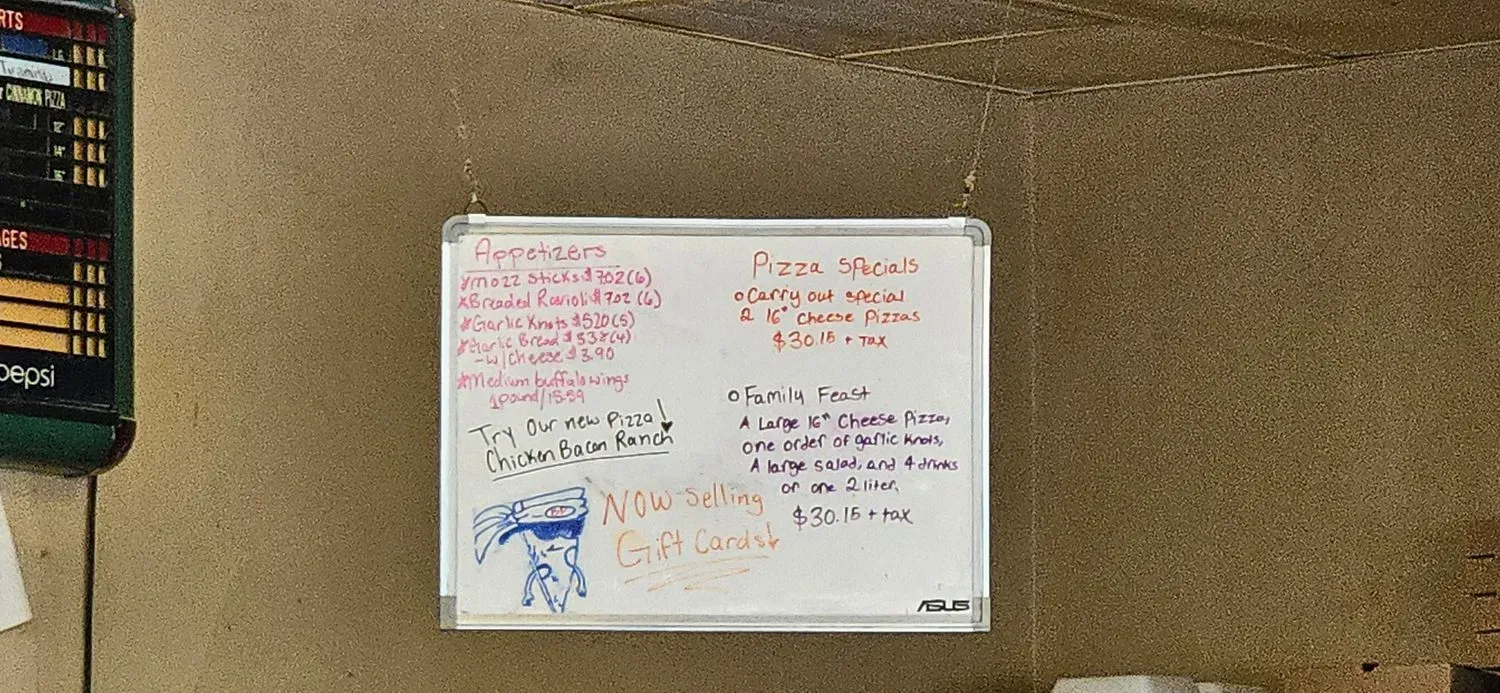 RTS
LG
CINNAMON PIZZA
12"
14"
16"
AGES
pepsi
Appetizers
mozz sticks $702 (6)
Breaded Ravioli $702 (6)
Garlic Knots $520 (5)
Garlic Bread $338 (4)
-w/cheese $3.90
Medium buffalo wings
1 pound/15.59
Try our new Pizza!
Chicken Bacon Ranch
NOW selling
Gift Cards!
Pizza Specials
o Carry out special
2 16" Cheese Pizzas
$30.15 + Tax
o Family Feast
A Large 16" Cheese Pizza,
one order of garlic knots,
A large salad, and 4 drinks
or one 2 liter.
$30.15 + tax
ASUS